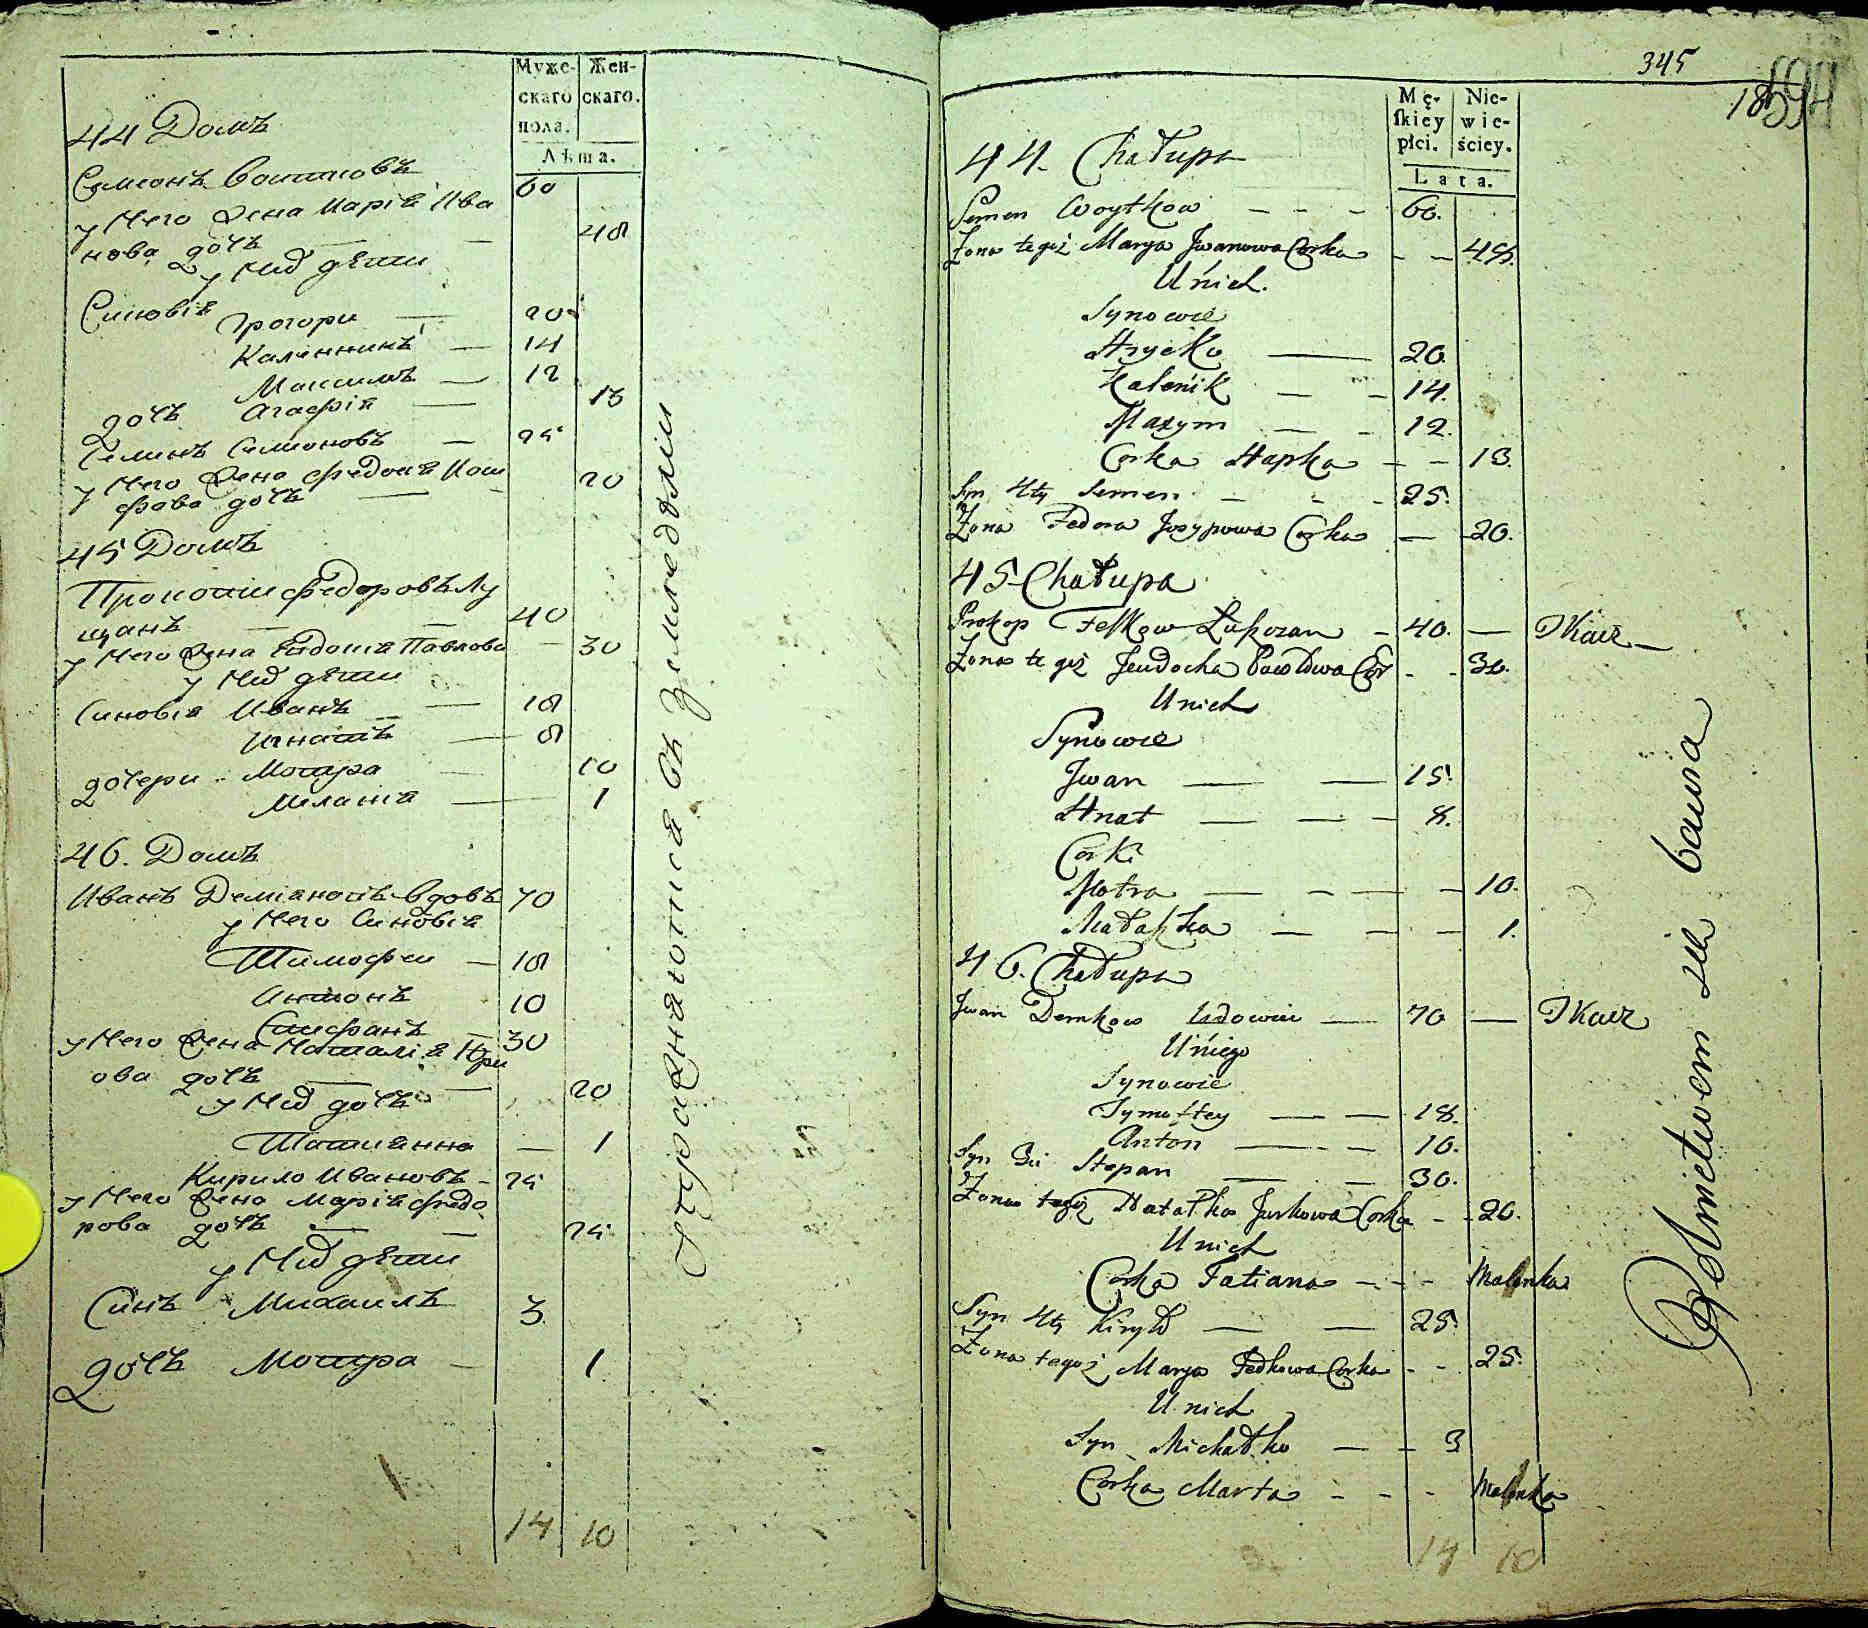 Муже-
скаго
пола.
Жен-
скаго.
Лѣта.
44 Домъ
Семіонъ Воитковъ 60
у Него Жена Марія Ива
нова дочъ — — 48
у Нихъ дѣти
Синовія Григори — 20
Каленникъ — 14
Максимъ — 12
дочъ Агафія — 13
Семинъ Семионовъ — 25
у Него Жена Федосія Иоси
фова дочъ — 20
45 Домъ
Прокопи Федоровъ Лу
щанъ — — 40
у Него Жена Евдокія Павлова — 30
у Нихъ дѣти
Синовія Иванъ — 18
Игнатъ — 8
дочери Мотра — 10
Мелашія — 1
46. Домъ
Иванъ Деміановъ вдовъ 70
у Него Синовія
Тимофеи — 18
Антонъ 10
Стефанъ — 30
у Него Жена Наталія Юри
ова дочъ — — 20
у Нихъ дочъ
Татіанна — 1
Кирило Ивановъ - 25
у Него Жена Марія Федо
рова дочъ — — 25
у Нихъ дѣти
Синъ Михаилъ 3
дочъ Мотра — 1
14 10
Упражнаютса въ Земледѣліи
345
594
Mę-
skiey
płci.
Nie-
wie-
ściey.
Lata.
44. Chałupa
Semen Woytkow — — — 60.
Żona tegoż Marya Jwanowa Corka — — 48.
U nich.
Synowie
Hryćko — 20.
Kalenik — — 14.
Maxym — — 12.
Corka Hapka — — 13.
Syn 4ty Semen — — — 25.
Żona Fedora Josypowa Corka — 20.
45 Chałupa
Prokop Feśkow Łuszczan — 40. — Tkacz —
Żona tegoż Jewdocha Pawłowa Cor - - 30.
U nich
Synowie
Jwan — — 15.
Hnat — — — 8.
Córki
Motra — — — — 10.
Małaszka — — — 1.
46. Chałupa
Jwan Demkow Wdowiec — 70 — Tkacz
U niego
Synowie
Tymoftey — — 18.
Anton — — — 10.
Syn 3ci Stepan — — 30.
Żona tegoż Natałka Jurkowa Corka - - 20.
U nich
Corka Tatiana - - - Malenka
Syn 4ty Kiryło — — 25.
Żona tegoż Marya Fedkowa Corka - - 25.
U nich
Syn Michałko — — 3
Corka Marta - - - Malenka
14 10
Rolnictwem się bawia